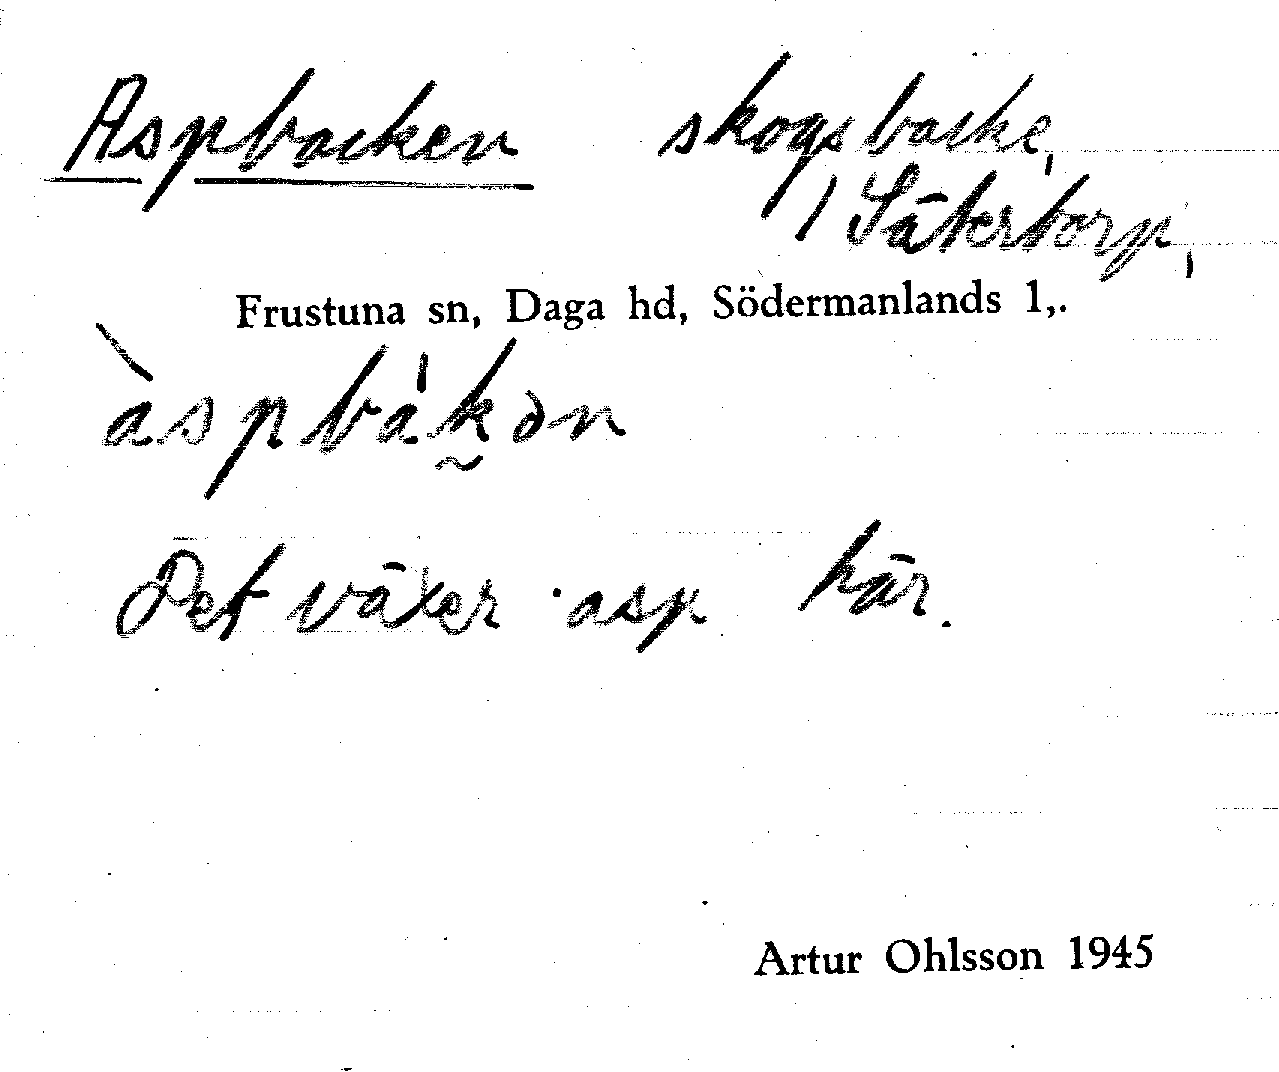 Aspbacken skogsbacke,
/ Sätertorp,
Frustuna sn, Daga hd, Södermanlands l,.
àspbák̰ən
Det växer asp här.
Artur Ohlsson 1945